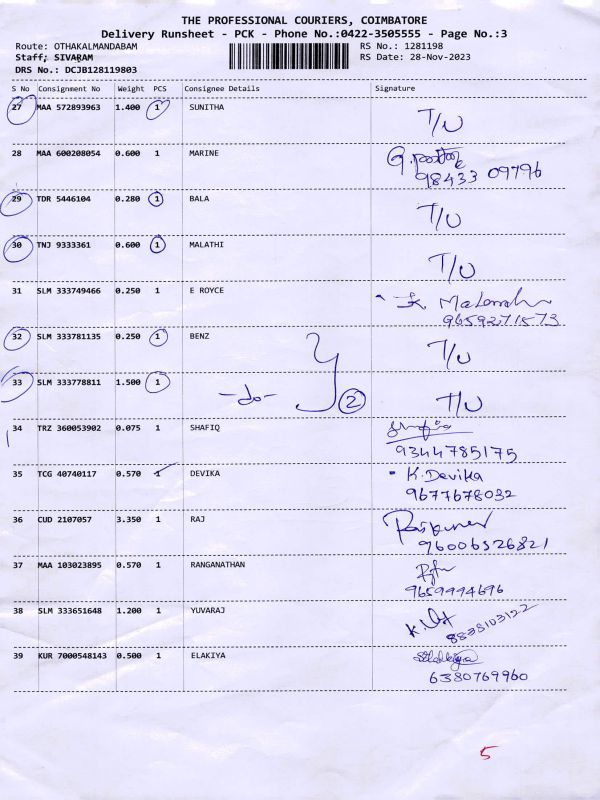 THE PROFESSIONAL COURIERS, COIMBATORE
Delivery Runsheet - PCK - Phone No.:0422-3505555 - Page No.:3
Route: OTHAKALMANDABAM RS No.: 1281198
Staff: SIVARAM RS Date: 28-Nov-2023
DRS No.: DCJB128119803
S No Consignment No Weight PCS Consignee Details Signature
27 MAA 572893963 1.400 1 SUNITHA T/U
28 MAA 600208054 0.600 1 MARINE
98433 09796
29 TDR 5446104 0.280 1 BALA T/U
30 TNJ 9333361 0.600 1 MALATHI T/U
31 SLM 333749466 0.250 1 E ROYCE
9659271573
32 SLM 333781135 0.250 1 BENZ T/U
33 SLM 333778811 1.500 1 -do- 2 T/U
34 TRZ 360053902 0.075 1 SHAFIQ
9344785175
35 TCG 40740117 0.570 1 DEVIKA K.Devika
9677678032
36 CUD 2107057 3.350 1 RAJ
96006526821
37 MAA 103023895 0.570 1 RANGANATHAN
9659994696
38 SLM 333651648 1.200 1 YUVARAJ
8838103122
39 KUR 7000548143 0.500 1 ELAKIYA
6380769960
5